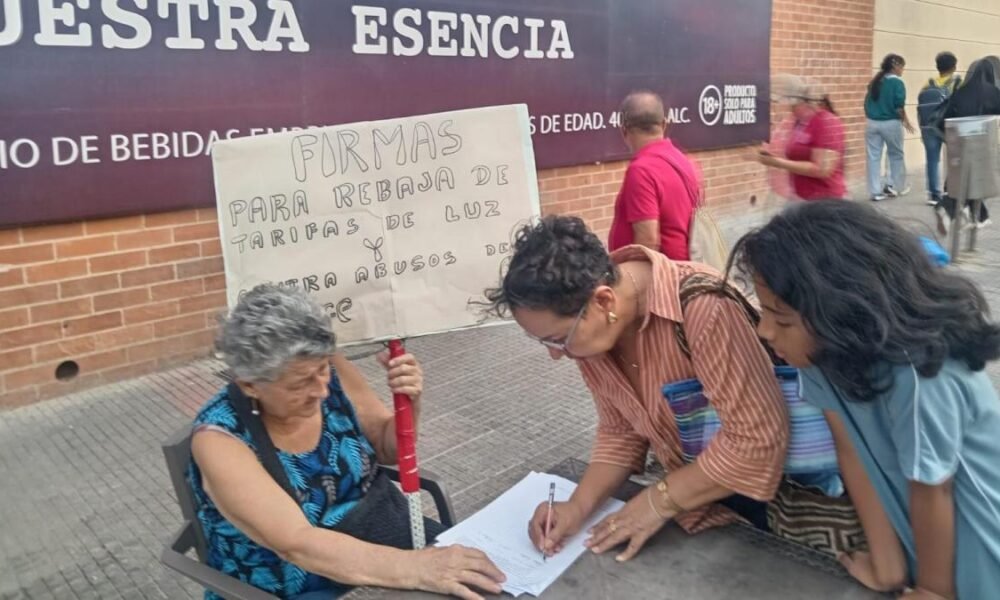 UESTRA ESENCIA
IO DE BEBIDAS
S DE EDAD.
ALC.
18+
PRODUCTO
SOLO PARA
ADULTOS
FIRMAS
PARA REBAJA DE
TARIFAS DE LUZ
Y
NTRA ABUSOS DE